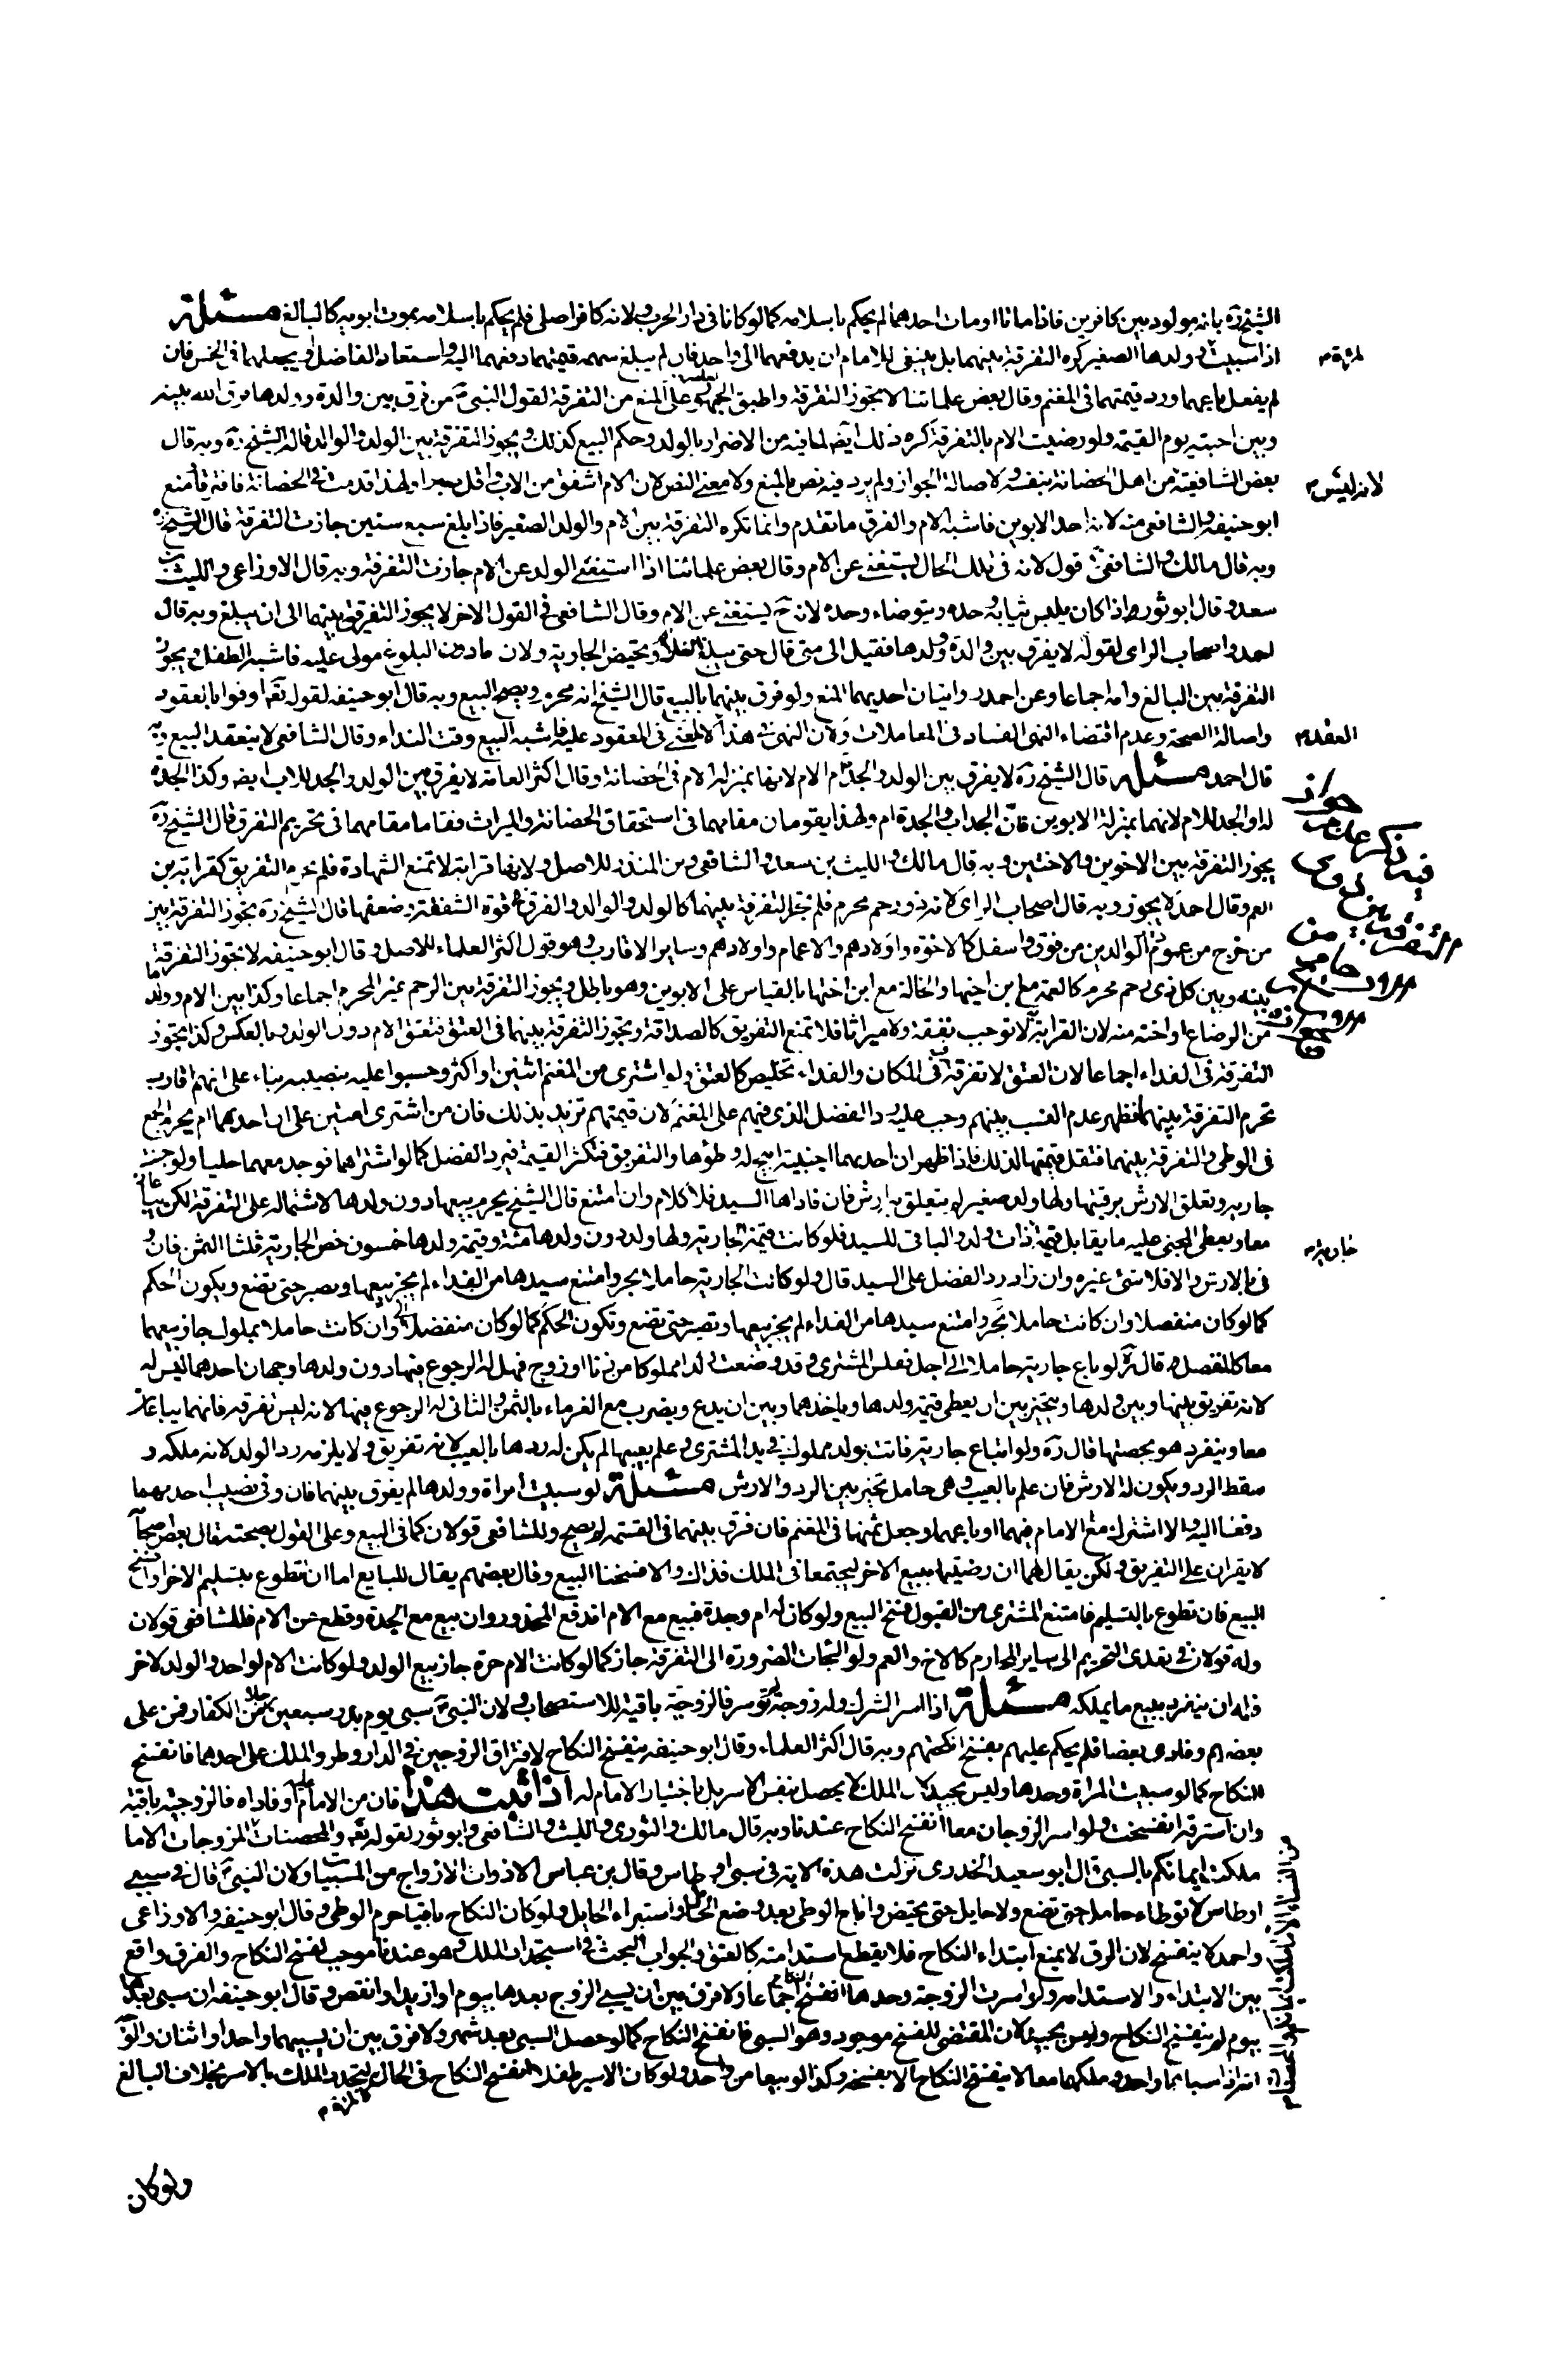 الشيخ ره بانه مولود بين كافرين فاذا ماتا او مات احدهما لم يحكم باسلامه كما لو كانا فى دار الحرب ولانه كافر اصلى فلم يحكم باسلامه بموت ابويه كالبالغ مسئلة
اذا سبيت وولدها الصغير كره التفرقة بينهما بل ينبغى للامام ان يدفعهما الى واحد فان لم يبلغ سهمه قيمتهما دفعهما اليه واستعاد الفاضل او يجعلهما فى الخمس فان
لم يفعل باعهما ورد قيمتهما فى المغنم وقال بعض علمائنا لا تجوز التفرقة واطبق الجمهور على المنع من التفرقة لقول النبى من فرق بين والدة وولدها فرق الله بينه
وبين احبته يوم القيمة ولو رضيت الام بالتفرقة كره ذلك ايضا لما فيه من الاضرار بالولد وحكم البيع كذلك ويجوز التفرقة بين الولد والوالد قاله الشيخ ره وبه قال
بعض الشافعية من اهل الحضانة بنفسه ولاصالة الجواز ولم يرد فيه نص بالمنع ولا معنى النص لان الام اشفق من الاب واقل صبرا ولهذا قدمت فى الحضانة فافترقا ومنع
ابو حنيفة والشافعى منه لانه احد الابوين فاشبه الام والفرق ما تقدم وانما تكره التفرقة بين الام والولد الصغير فاذا بلغ سبع سنين جازت التفرقة قال الشيخ ره
وبه قال مالك والشافعى فى قول لانه فى تلك الحال يستغنى عن الام وقال بعض علمائنا اذا استغنى الولد عن الام جازت التفرقة وبه قال الاوزاعى والليث بن
سعد وقال ابو ثور اذا كان يلبس ثيابه وحده ويتوضاء وحده لانه ح يستغنى عن الام وقال الشافعى فى القول الاخر لا يجوز التفريق بينهما الى ان يبلغ وبه قال
احمد واصحاب الراى لقوله لا يفرق بين والدة وولدها فقيل الى متى قال حتى يبلغ الغلام وتحيض الجارية ولان مادون البلوغ مولى عليه فاشبه الطفل ويجوز
التفرقة بين البالغ وامه اجماعا وعن احمد روايتان احديهما المنع ولو فرق بينهما بالبيع قال الشيخ انه محرم ويصح البيع وبه قال ابو حنيفة لقوله تعالى اوفوا بالعقود
واصالة الصحة وعدم اقتضاء النهى الفساد فى المعاملات ولان النهى هذا لا لمعنى فى المعقود عليه فاشبه البيع وقت النداء وقال الشافعى لا ينعقد البيع وبه
قال احمد مسئلة قال الشيخ ره لا يفرق بين الولد والجدة ام الام لانها بمنزلة الام فى الحضانة وقال اكثر العامة لا يفرق بين الولد والجد للاب ايضا وكذا الجدة
له او الجد للام لانهما بمنزلة الابوين فان الجد اب والجدة ام ولهذا يقومان مقامهما فى استحقاق الحضانة والميراث فقاما مقامهما فى تحريم التفرق قال الشيخ ره
يجوز التفرقة بين الاخوين والاختين وبه قال مالك والليث بن سعد والشافعى وبن المنذر للاصل ولانها قرابة لا تمنع الشهادة فلم تحرم التفريق كقرابة بن
العم وقال احمد لا يجوز وبه قال اصحاب الراى لانه ذو رحم محرم فلم تجز التفرقة بينهما كالولد والوالد والفرق قوة الشفقة وضعفها قال الشيخ ره تجوز التفرقة بين
من خرج من عمود الوالدين من فوق واسفل كالاخوة واولادهم والاعمام واولادهم وساير الاقارب وهو قول اكثر العلماء للاصل وقال ابو حنيفة لا تجوز التفرقة
بينه وبين كل ذى رحم محرم كالعمة مع ابن اخيها والخالة مع ابن اختها بالقياس على الابوين وهو باطل ويجوز التفرقة بين الرحم غير المحرم اجماعا وكذا بين الام وولدها
من الرضاع او اخته منه لان القرابة لا توجب نفقة ولا ميراثا فلا تمنع التفريق كالصداقة وتجوز التفرقة بينهما فى العتق فتعتق الام دون الولد وبالعكس وكذا تجوز
التفرقة فى الفداء اجماعا لان العتق لا تفرقة فى المكان والفداء تخليص كالعتق ولو اشترى من المغنم اثنين او اكثر وحسبوا عليه بنصيبه بناء على انهم اقارب
تحرم التفرقة بينهم فظهر عدم النسب بينهم وجب عليه رد الفضل الذى فيهم على المغنم لان قيمتهم تزيد بذلك فان من اشترى امتين على ان احدهما ام يحرم الجمع
فى الوطى والتفرقة بينهما فتقل قيمتها لذلك فاذا ظهر ان احديهما اجنبية ابيح له وطؤها والتفريق فتكثر القيمة فيرد الفضل كما لو اشتراهما فوجد معهما حليا ولو جنت
جارية وتعلق الارش برقبتها ولها ولد صغير لم يتعلق به ارش فان فاداها السيد فلا كلام وان امتنع قال الشيخ يحرم بيعها دون ولدها لاشتماله على التفرقة لكن يباعان
معا ويعطى المجنى عليه ما يقابل قيمة ذات ولد والباقى للسيد فلو كانت قيمة الجارية ولها ولد دون ولدها مئة وقيمة ولدها خمسون خص الجارية ثلثا الثمن فان و
فى بالارش والا فلا شىء غيره وان زاد رد الفضل على السيد قال ولو كانت الجارية حاملا بحر وامتنع سيدها من الفداء لم يجز بيعها ويصبر حتى تضع ويكون الحكم
كما لو كان منفصلا وان كانت حاملا بحر وامتنع سيدها من الفداء لم يجز بيعها وتصبر حتى تضع وتكون الحكم كما لو كان منفصلا وان كانت حاملا بمملوك جاز بيعهما
معا كالمنفصل وقال ره لو باع جارية حاملا الى اجل ففلس المشترى وقد وضعت ولدا مملوكا من زنا او زوج فهل له الرجوع فيها دون ولدها وجهان احدهما ليس له
لانه تفريق بينها وبين ولدها ويتخير بين ان يعطى قيمة ولدها وياخذهما وبين ان يدع ويضرب مع الغرماء بالثمن والثانى له الرجوع فيها لانه ليس تفرقة فانهما يباعان
معا وينفرد هو بحصتها قال ره ولو ابتاع جارية فاتت بولد مملوك فى يد المشترى وعلم بعيبها لم يكن له ردها بالعيب لانه تفريق ولا يلزمه رد الولد لانه ملكه و
سقط الرد ويكون له الارش فان علم بالعيب وهى حامل تخير بين الرد والارش مسئلة لو سبيت امراة وولدها لم يفرق بينهما فان وفى نصيب احد بهما
دفعنا اليه والا اشترك مع الامام فيهما او باعهما وجعل ثمنها فى المغنم فان فرق بينهما فى القسمة لم يصح وللشافعى قولان كما فى البيع وعلى القول بصحته قال بعض اصحابه
لا يقران على التفريق ولكن يقال لهما ان رضيتما ببيع الاخر ليجتمعا فى الملك فذاك والا فسخنا البيع وقال بعضهم يقال للبايع اما ان تطوع بتسليم الاخر او فسخ
البيع فان تطوع بالتسليم فامتنع المشترى من القبول فسخ البيع ولو كان له ام وجدة فبيع مع الام اندفع المحذور وان بيع مع الجدة وقطع عن الام فللشافعى قولان
وله قولان فى تعدى التحريم الى ساير المحارم كالاخ والعم ولو الجات الضرورة الى التفرقة جاز كما لو كانت الام حرة جاز بيع الولد ولو كانت الام لواحد والولد لاخر
فله ان ينفرد ببيع ما يملكه مسئلة اذا اسر المشرك وله زوجة لم توسر فالزوجية باقية للاستصحاب ولان النبى سبى يوم بدر سبعين رجلا من الكفار فمن على
بعضهم وفادى بعضا فلم يحكم عليهم بفسخ انكحتهم وبه قال اكثر العلماء وقال ابو حنيفة ينفسخ النكاح لافتراق الزوجين فى الدار وطرو الملك على احدهما فانفسخ
النكاح كما لو سبيت المراة وحدها وليس بجيد لان الملك لا يحصل بنفس الاسر بل باختيار الامام له اذا ثبت هذا فان من الامام عليه او فاداه فالزوجية باقية
وان استرقه انفسخت ولو اسر الزوجان معا انفسخ النكاح عندنا وبه قال مالك والثورى والليث والشافعى وابو ثور لقوله تعالى والمحصنات المزوجات الا ما
ملكت ايمانكم بالسبى قال ابو سعيد الخدرى نزلت هذه الاية فى سبى اوطاس وقال بن عباس الا ذوات الازواج من المسبيات ولان النبى قال فى سبى
اوطاس لا توطاء حامل حتى تضع ولا حايل حتى تحيض واباح الوطى بعد وضع الحامل واستبراء الحايل ولو كان النكاح باقيا حرم الوطى وقال ابو حنيفة والاوزاعى
واحمد لا ينفسخ لان الرق لا يمنع ابتداء النكاح فلا يقطع استدامته كالعتق والجواب البحث فى استجداد الملك هو عندنا موجب لفسخ النكاح والفرق واقع
بين الابتداء والاستدامة ولو اسرت الزوجة وحدها انفسخ النكاح اجماعا ولا فرق بين ان يسبى الزوج بعدها بيوم او ازيد او انقص وقال ابو حنيفة ان سبى بعدها
بيوم لم ينفسخ النكاح وليس بجيد لان المقتضى للفسخ موجود وهو السبى فانفسخ النكاح كما لو حصل السبى بعد شهر ولا فرق بين ان يسبيهما واحد او اثنان والوجه
انه اذا سباهما واحد وملكهما معا لا ينفسخ النكاح الا بفسخه وكذا لو بيعا من واحد ولو كان الاسير طفلا انفسخ النكاح فى الحال لتجدد الملك بالاسر بخلاف البالغ
لانه ليس م
العقد م
جارية م
ولو كان